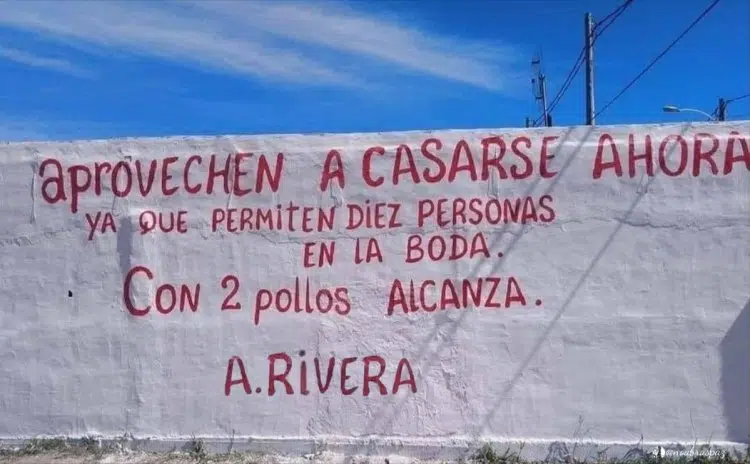 aPROVECHEN A CASARSE AHORA
YA QUE PERMITEN DIEZ PERSONAS
EN LA BODA.
CON 2 pollos ALCANZA.
A.RIVERA